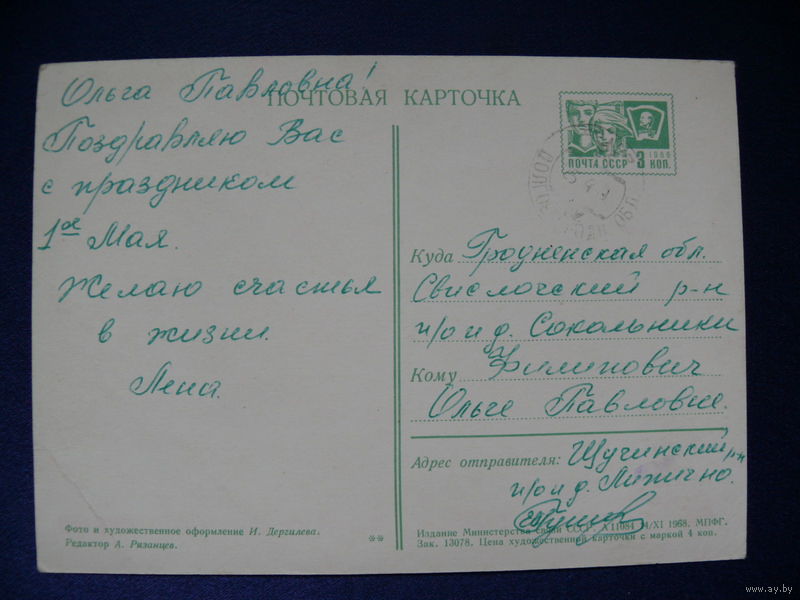 Ольга Павловна!
ПОЧТОВАЯ КАРТОЧКА
Поздравляю Вас
с праздником
1ое Мая.
Желаю счастья
в жизни.
Лена.
Фото и художественное оформление И. Дергилева.
Редактор А. Рязанцев.
**
ПОЧТА СССР 3 КОП.
1966
Куда Гродненская обл.
Свислочский р-н
п/о и д. Сокольники
Кому Филипович
Ольге Павловне.
Адрес отправителя: Щучинский р-н
п/о и д.
Издание Министерства связи СССР. А 11084 4/XI 1968. МПФГ.
Зак. 13078. Цена художественной карточки с маркой 4 коп.
www.ay.by